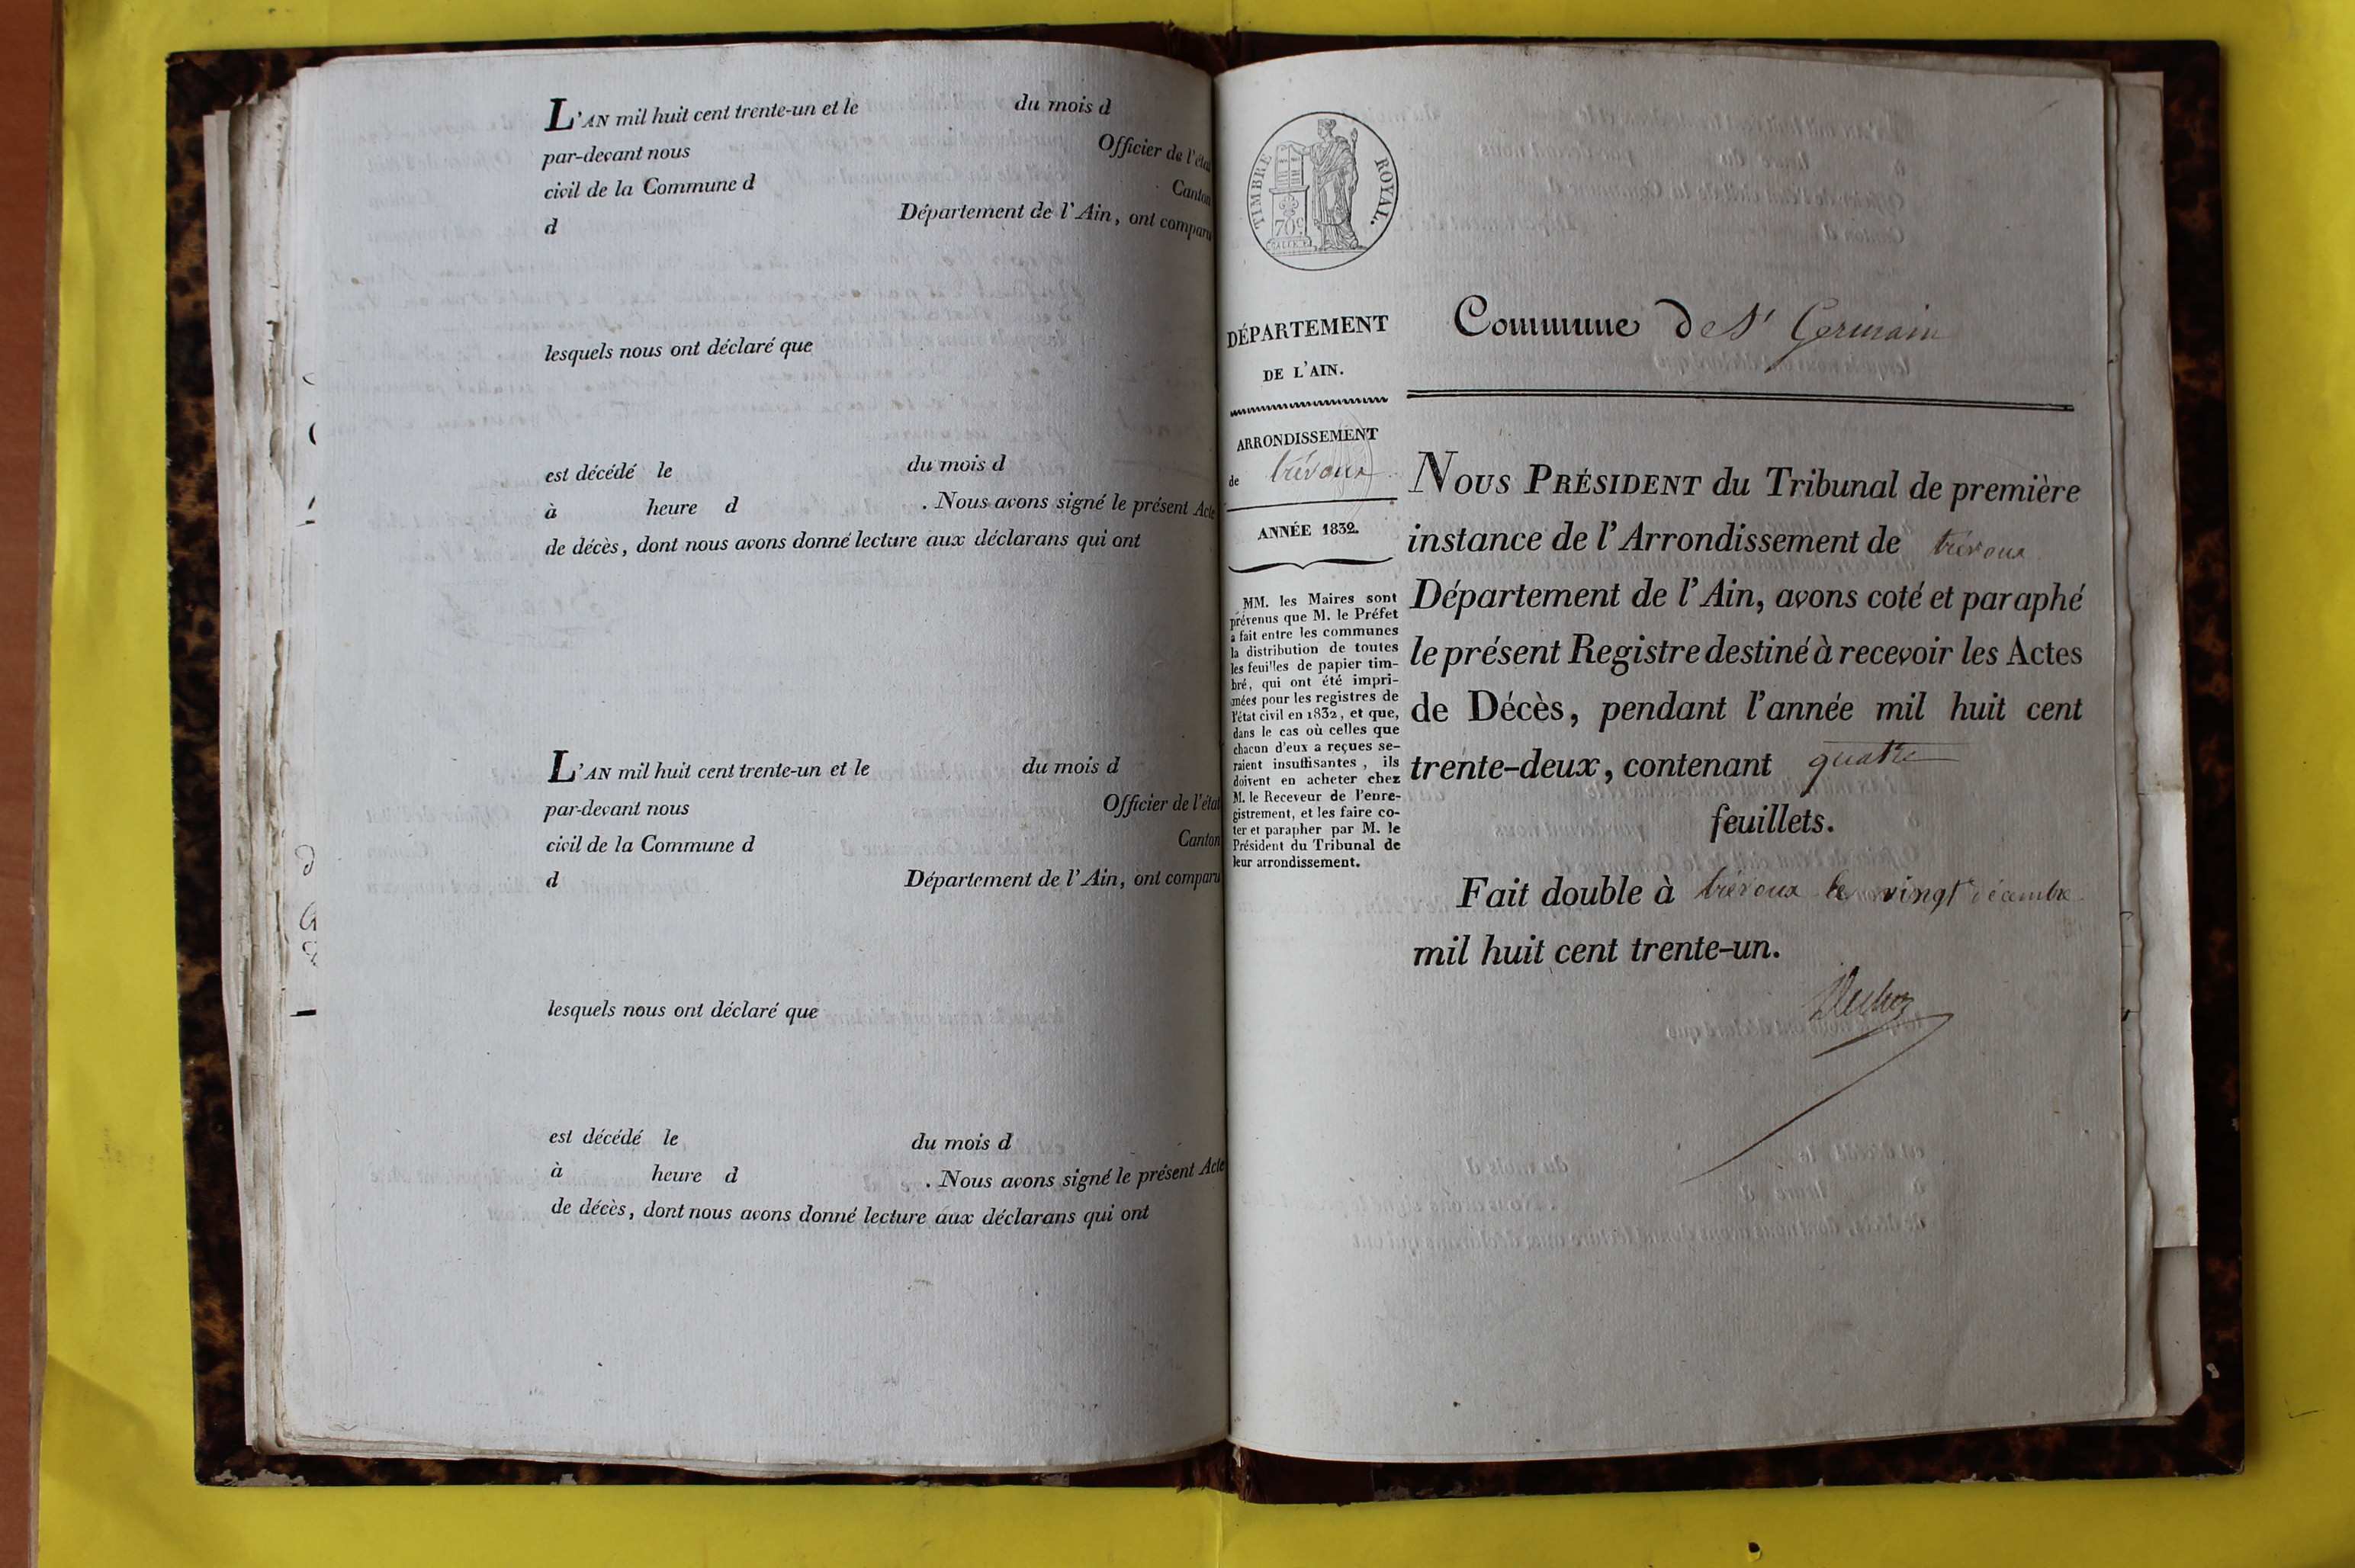 L'AN mil huit cent trente-un et le du mois d
par-devant nous Officier de l'état
civil de la Commune d Canton
d Département de l'Ain, ont comparu
lesquels nous ont déclaré que
est décédé le du mois d
à heure d . Nous avons signé le présent Acte
de décès, dont nous avons donné lecture aux déclarans qui ont
L'AN mil huit cent trente-un et le du mois d
par-devant nous Officier de l'état
civil de la Commune d Canton
d Département de l'Ain, ont comparu
lesquels nous ont déclaré que
est décédé le du mois d
à heure d . Nous avons signé le présent Acte
de décès, dont nous avons donné lecture aux déclarans qui ont
TIMBRE ROYAL.
70c
DÉPARTEMENT
DE L'AIN.
ARRONDISSEMENT
de trévoux
ANNÉE 1832.
MM. les Maires sont
prévenus que M. le Préfet
a fait entre les communes
la distribution de toutes
les feuilles de papier tim-
bré, qui ont été impri-
mées pour les registres de
l'état civil en 1832, et que,
dans le cas où celles que
chacun d'eux a reçues se-
raient insuffisantes, ils
doivent en acheter chez
M. le Receveur de l'enre-
gistrement, et les faire co-
ter et parapher par M. le
Président du Tribunal de
leur arrondissement.
Commune de St Germain
NOUS PRÉSIDENT du Tribunal de première
instance de l'Arrondissement de trévoux
Département de l'Ain, avons coté et paraphé
le présent Registre destiné à recevoir les Actes
de Décès, pendant l'année mil huit cent
trente-deux, contenant quatre
feuillets.
Fait double à trévoux le vingt décembre
mil huit cent trente-un.